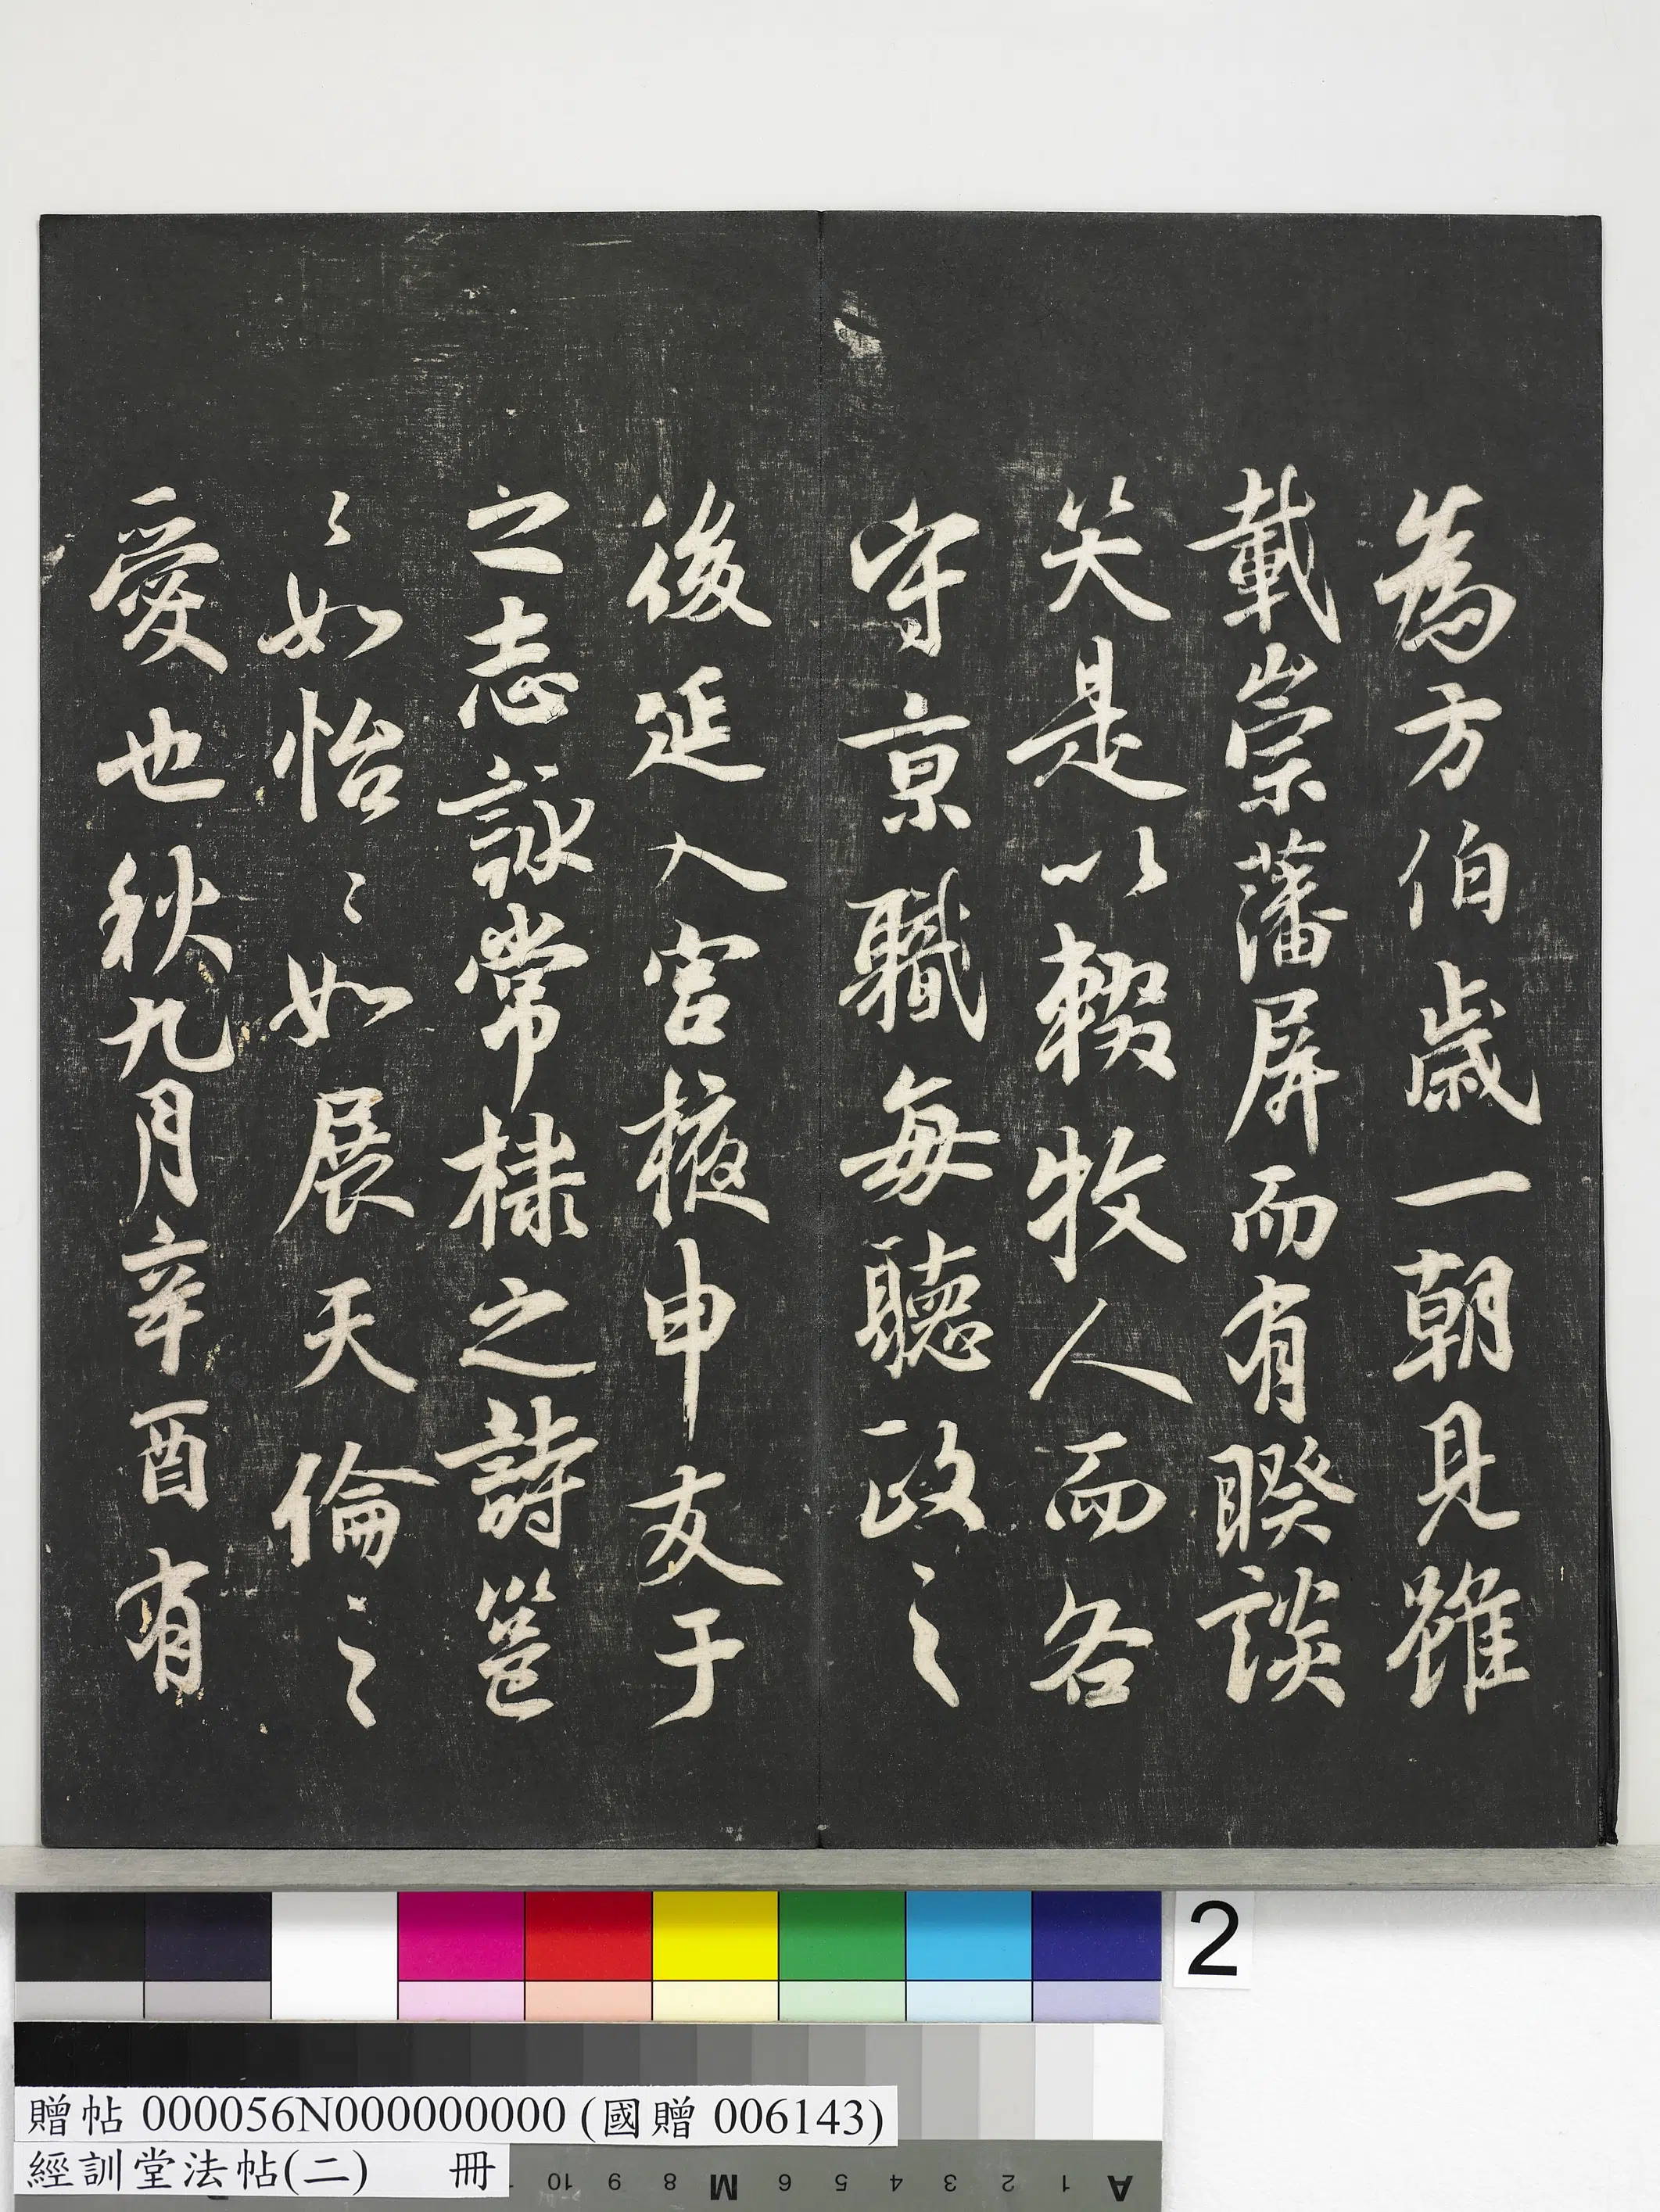 為方伯歲一朝見雖
載崇藩屏而有暌談
笑是以輟牧人而各
守京職每聽政之
後延入宮掖申友于
之志詠常棣之詩邕
邕如怡怡如展天倫之
愛也秋九月辛酉有
2
贈帖 000056N000000000 (國贈 006143)
經訓堂法帖(二) 冊
10 9 8 M 6 5 4 3 2 1 A